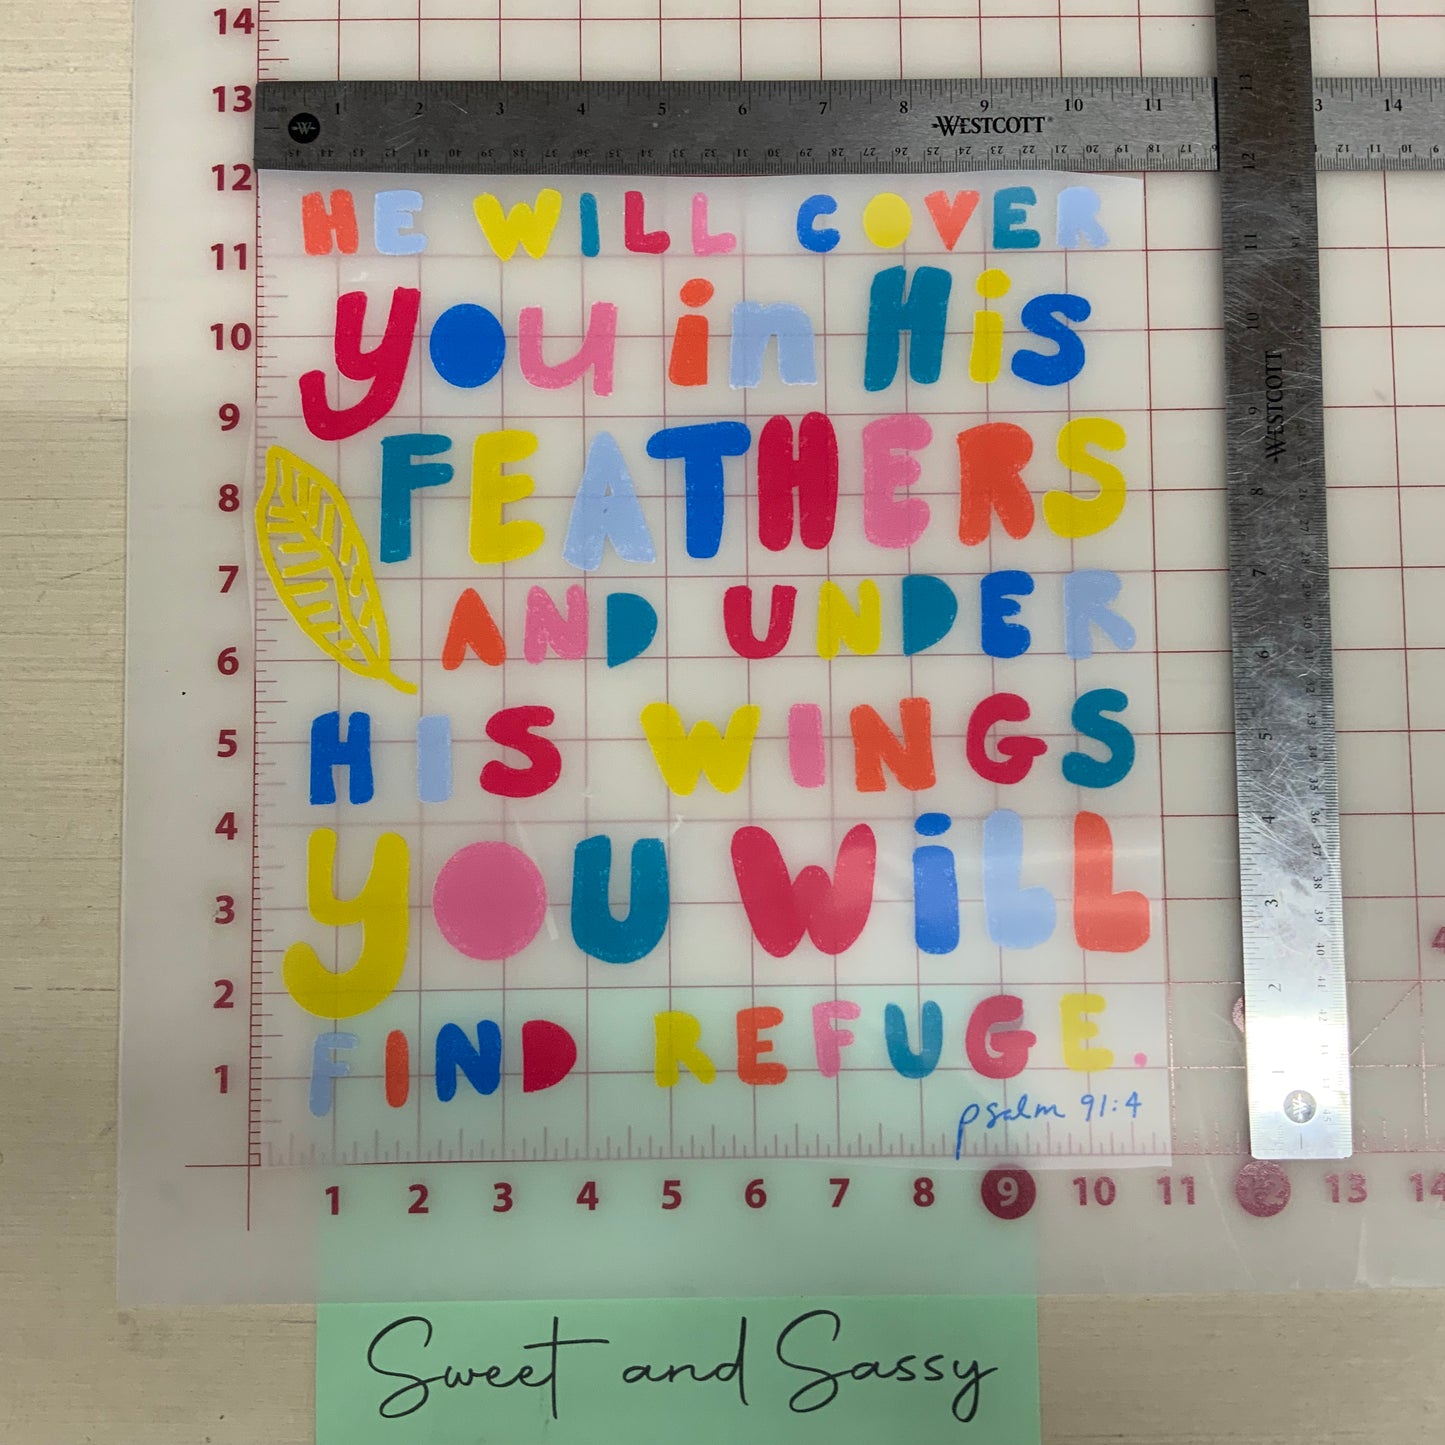 14
13
12
11
10
9
8
7
6
5
4
3
2
1
1 2 3 4 5 6 7 8 9 10 11 3 14
WESTCOTT
HE WILL COVER
you in His
FEATHERS
AND UNDER
HIS WINGS
you will
FIND REFUGE.
psalm 91:4
13
12
11
10
9
WESTCOTT
8
7
6
5
4
3
2
1
1 2 3 4 5 6 7 8 9 10 11 12 13 14
Sweet and Sassy